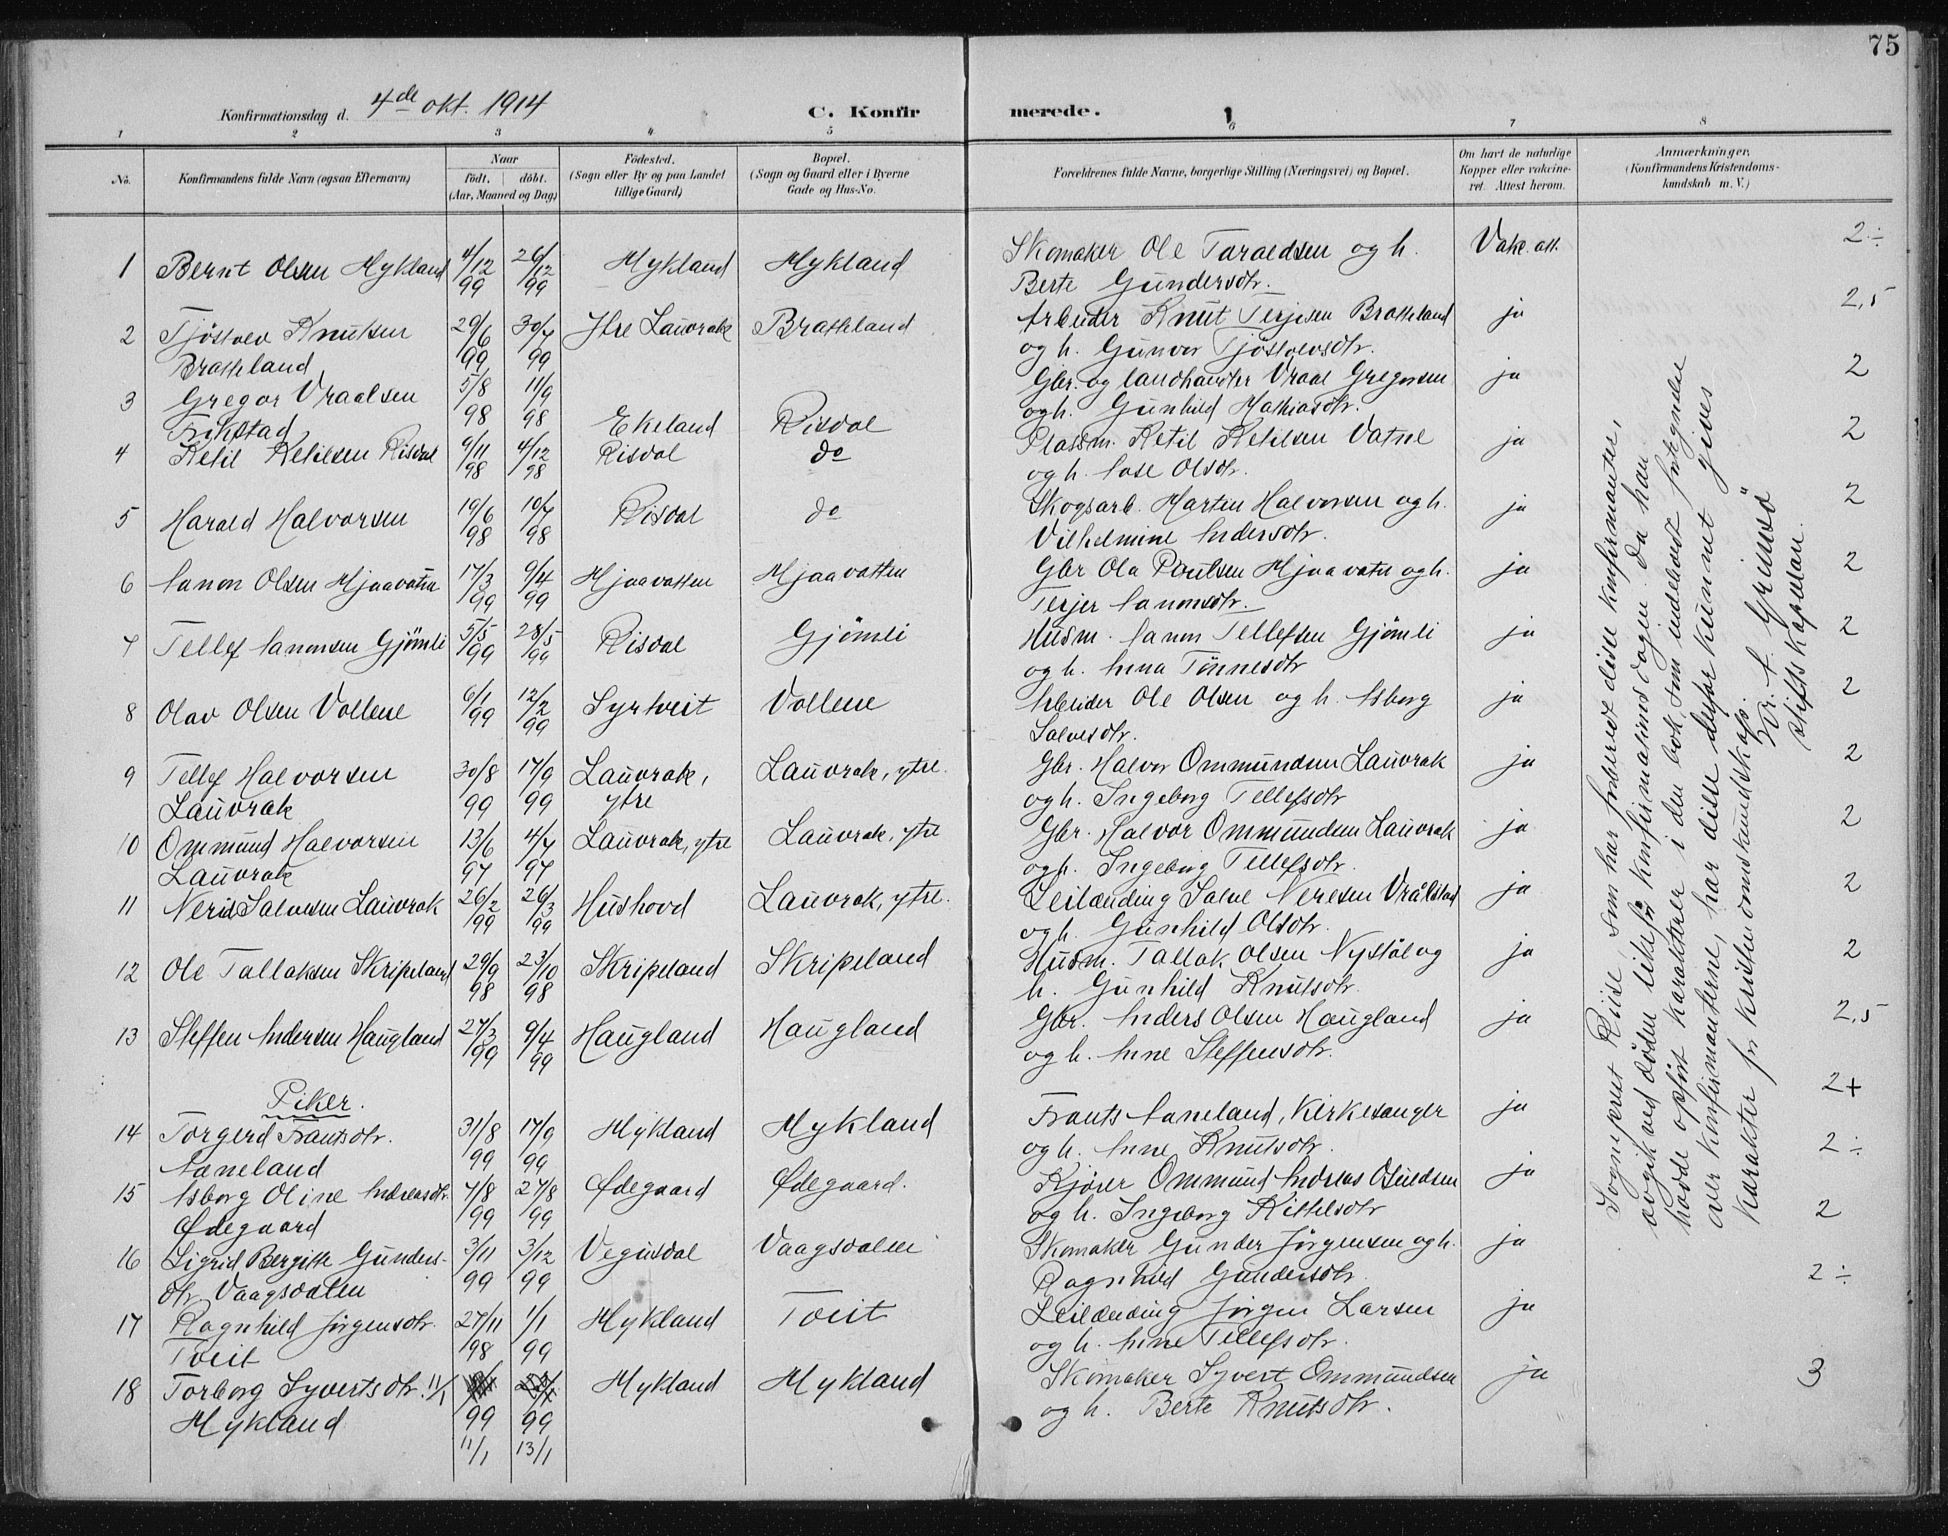 75
Konfirmationsdag d. 4de okt. 1914
C. Konfirmerede.
1 2 3 4 5 6 7 8
No.
Konfirmandens fulde Navn (ogsaa Efternavn)
Naar
födt. döbt.
(Aar, Maaned og Dag)
Födested.
(Sogn eller By og paa Landet
tillige Gaard)
Bopæl.
(Sogn og Gaard eller i Byerne
Gade og Hus-No.
Forældrenes fulde Navne, borgerlige Stilling (Næringsvei) og Bopæl.
Om havt de naturlige
Kopper eller vakcine-
ret. Attest herom.
Anmærkninger.
(Konfirmandens Kristendoms-
kundskab m. V.)
1 Bernt Olsen Hykland 4/12 99 26/12 99 Hykland Hykland Skomaker Ole Taraldsen og h. Vakc. att. 2÷
Berte Gundersdtr.
2 Tjöstolv Knutsen 29/6 99 30/7 99 Ytre Lauvrak Bratteland Arbeider Knut Terjesen Bratteland ja 2,5
Bratteland og h. Gunvor Tjöstolvsdtr.
3 Gregor Vraalsen 5/8 98 11/9 98 Ekeland Risdal Gbr. og landhandler Vraal Gregorsen ja 2
Frikstad og h. Gunhild Mathiasdtr.
4 Ketil Ketilsen Risdal 9/11 98 4/12 98 Risdal do Plassm. Ketil Ketilsen Vatne ja 2
og h. Aase Olsdtr.
5 Harald Halvorsen 19/6 98 10/7 98 Risdal do Skogsarb. Martin Halvorsen og h. ja 2
Vilhelmine Andersdtr.
6 Aanon Olsen Hjaavatn 17/3 99 9/4 99 Hjaavatten Hjaavatten Gbr Ola Paulsen Hjaavatn og h. ja 2
Terjer Aanonsdtr.
7 Tellef Aanonsen Gjömli 5/5 99 28/5 99 Risdal Gjömli Husm. Aanon Tellefsen Gjömli ja 2
og h. Anna Tönnesdtr
8 Olav Olsen Vollene 6/1 99 12/2 99 Syrtveit Vollene Arbeider Ole Olsen og h. Asborg ja 2
Salvesdtr.
9 Tellef Halvorsen 30/8 99 17/9 99 Lauvrak, Lauvrak, ytre. Gbr. Halvor Ommundsen Lauvrak ja 2
Lauvrak ytre og h. Ingeborg Tellefsdtr
10 Ommund Halvorsen 13/6 97 4/7 97 Lauvrak, ytre Lauvrak, ytre Gbr. Halvor Ommundsen Lauvrak ja 2
Lauvrak og h. Ingeborg Tellefsdtr.
11 Nerid Salvesen Lauvrak 26/2 99 26/3 99 Hushovd Lauvrak, ytre. Leilænding Salve Neresen Vrålstad ja 2
og h. Gunhild Olsdtr.
12 Ole Tallaksen Skripeland 29/9 98 23/10 98 Skripeland Skripeland Husm. Tallak Olsen Nystöl og ja 2
h. Gunhild Knutsdtr.
13 Steffen Andersen Haugland 27/3 99 9/4 99 Haugland Haugland Gbr. Anders Olsen Haugland ja 2,5
og h. Anne Steffensdtr.
Piker.
14 Torgerd Frantsdtr. 31/8 99 17/9 99 Hykland Hykland Frants Aaneland, Kirkesanger ja 2+
Aaneland og h. Anne Knutsdtr.
15 Asborg Oline Andreasdtr. 7/8 99 27/8 99 Ødegaard Ødegaard. Kjörer Ommund Andreas Osuldsen ja 2÷
Ødegaard og h. Ingeborg Kittelsdtr
16 Sigrid Bergitte Gunders- 3/11 99 3/12 99 Vegusdal Vaagsdalen Skomaker Gunder Jörgensen og h. ja 2
dtr. Vaagsdalen Ragnhild Gundersdtr.
17 Ragnhild Jörgensdtr. 27/11 98 1/1 99 Hykland Tveit Leilænding Jörgen Larsen ja 2÷
Tveit og h. Anne Tellefsdtr.
18 Torborg Syvertsdtr. 11/1 99 99 Hykland Hykland Skomaker Syvert Ommundsen ja 3
Hykland og h. Berte Knutsdtr.
11/1 13/1
Sogneprest Riise, som har forberedt disse konfirmanter,
avgik ved döden like för konfirmationsdagen. Da han
hadde opfört karakterer i den bok, som indeholdt fortegnelse
over konfirmanterne, har disse derfor kunnet gives
karakter for kristendomskundskap.
Kr. A. Grimsö
Stiftskapellan.